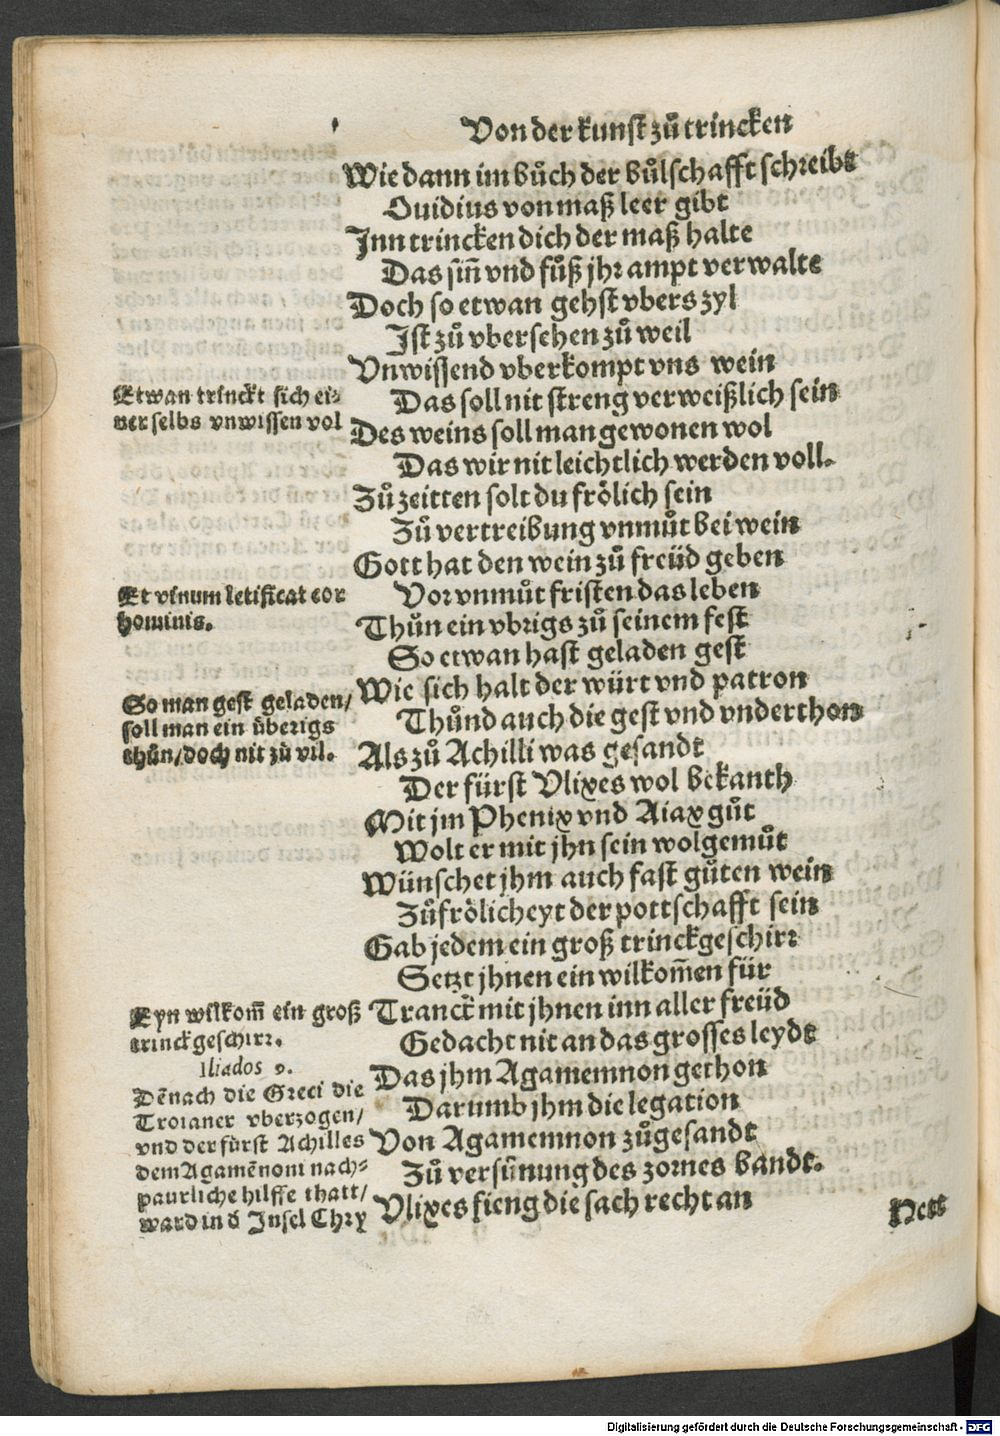 Von der kunst zů trincken
Wie dann im bůch der bůlschafft schreibt
Ouidius von maß leer gibt
Jnn trincken dich der maß halte
Das siñ vnd fůß jhr ampt verwalte
Doch so etwan gehst vbers zyl
Jst zů vbersehen zů weil
Vnwissend vberkompt vns wein
Das soll nit streng verweißlich sein
Etwan trinckt sich ei-
ner selbs vnwissen vol
Des weins soll man gewonen wol
Das wir nit leichtlich werden voll.
Zů zeitten solt du frölich sein
Zů vertreibung vnmůt bei wein
Gott hat den wein zů freüd geben
Vor vnmůt fristen das leben
Et vinum letificat cor
hominis.
Thůn ein vbrigs zů seinem fest
So etwan hast geladen gest
Wie sich halt der würt vnd patron
Thůnd auch die gest vnd vnderthon
So man gest geladen/
soll man ein überigs
thůn/doch nit zů vil.
Als zů Achilli was gesandt
Der fürst Vlixes wol bekanth
Mit jm Phenix vnd Aiax gůt
Wolt er mit jhn sein wolgemůt
Wünschet jhm auch fast gůten wein
Zů frölicheyt der pottschafft sein
Gab jedem ein groß trinckgeschirr
Setzt jhnen ein wilkom̃en für
Tranck mit jhnen inn aller freüd
Gedacht nit an das grosses leydt
Eyn wilkom̃ ein groß
trinckgeschirr.
Iliados 9.
Das jhm Agamemnon gethon
Darumb jhm die legation
Von Agamemnon zůgesandt
Zů versünung des zornes bandt.
Vlixes fieng die sach recht an
Dẽnach die Greci die
Troianer vberzogen/
vnd der fürst Achilles
dem Agamẽnoni nach-
paurliche hilffe thatt/
ward in d Jnsel Chry
Nest
Digitalisierung gefördert durch die Deutsche Forschungsgemeinschaft - DFG